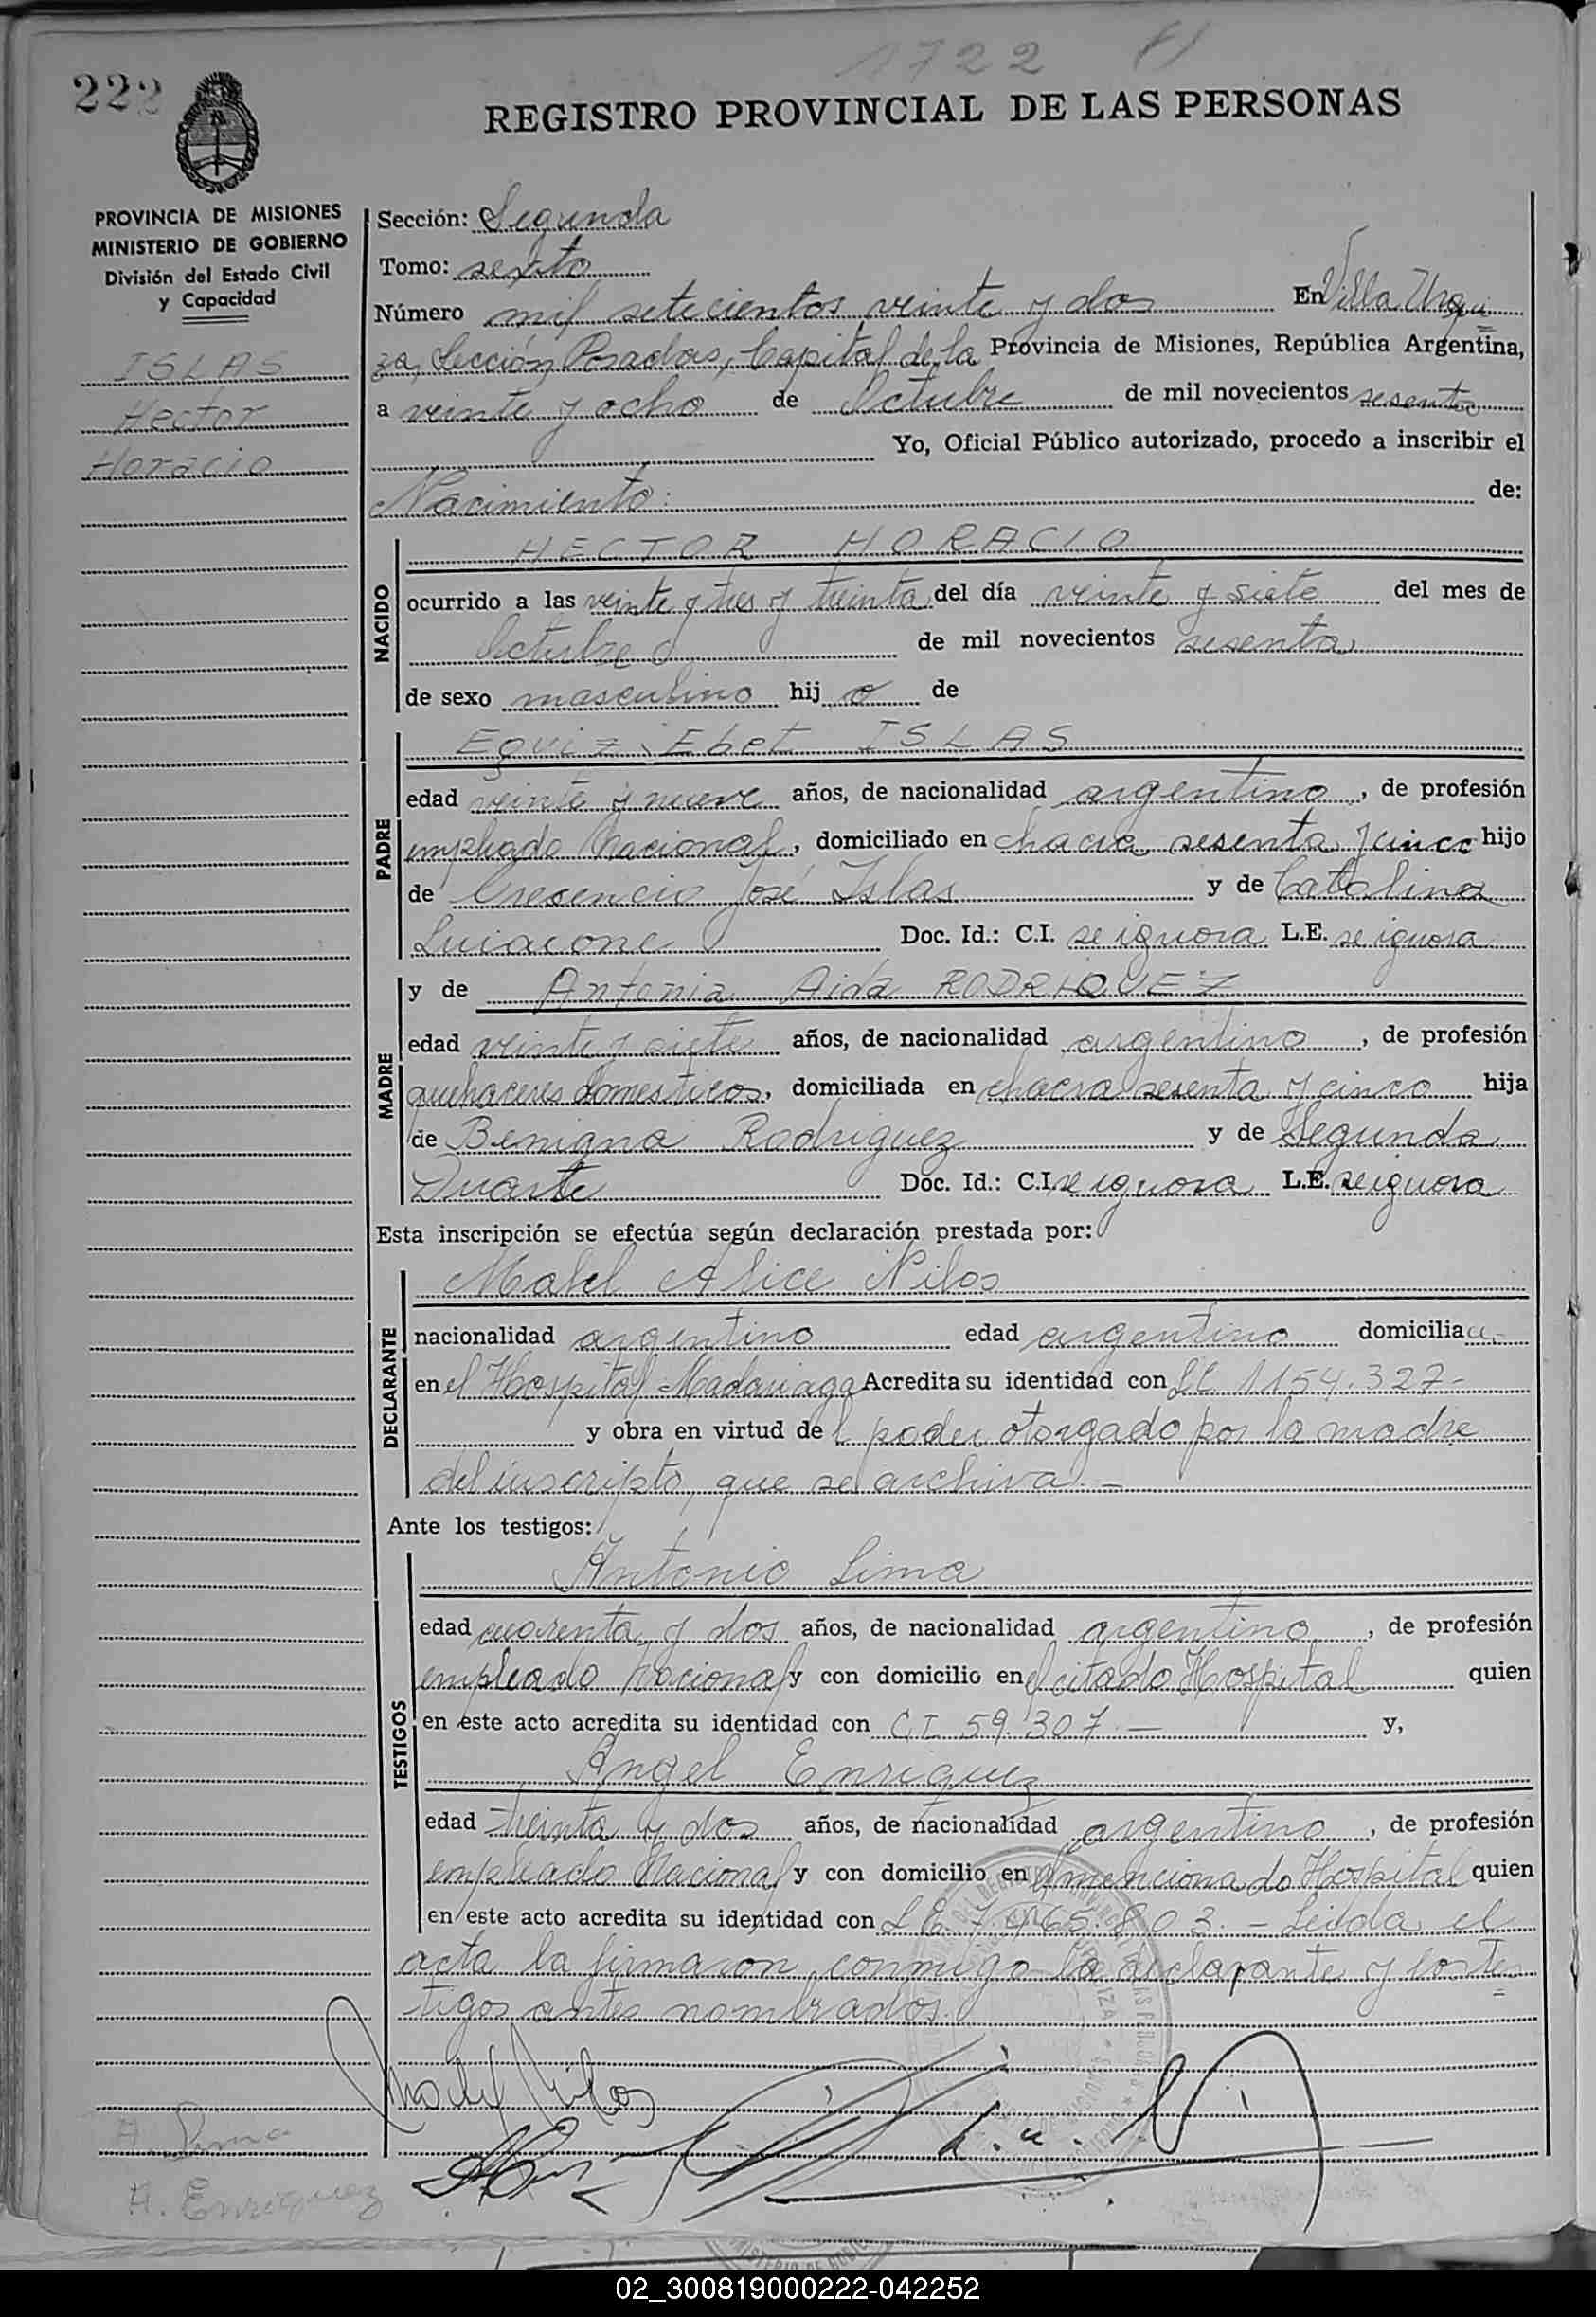 1722
222
REGISTRO PROVINCIAL DE LAS PERSONAS
PROVINCIA DE MISIONES
MINISTERIO DE GOBIERNO
División del Estado Civil
y Capacidad
ISLAS
Hector
Horacio
Sección: Segunda
Tomo: sexto
Número mil setecientos veinte y dos En Villa Urqui
za, Sección Posadas, Capital de la Provincia de Misiones, República Argentina,
a veinte y ocho de Octubre de mil novecientos sesenta
Yo, Oficial Público autorizado, procedo a inscribir el
Nacimiento: de:
NACIDO
HECTOR HORACIO
ocurrido a las veinte y tres y treinta del día veinte y siete del mes de
Octubre de mil novecientos sesenta
de sexo masculino hij o de
PADRE
Eguiz Ebet ISLAS
edad veinte y nueve años, de nacionalidad argentino, de profesión
empleado Nacional, domiciliado en chacra sesenta y cinco hijo
de Cresencio José Islas y de Catalina
Luiacone Doc. Id.: C.I. se ignora L.E. se ignora
MADRE
y de Antonia Aida RODRIQUEZ
edad veinte y siete años, de nacionalidad argentino, de profesión
quehaceres domesticos, domiciliada en chacra sesenta y cinco hija
de Benigna Rodriguez y de Segunda
Duarte Doc. Id.: C.I. se ignora L.E. se ignora
Esta inscripción se efectúa según declaración prestada por:
DECLARANTE
Mabel Alice Nilos
nacionalidad argentino edad argentino domicilia
en el Hospital Madariaga Acredita su identidad con LC 1154.327-
y obra en virtud del poder otorgado por la madre
del inscripto, que se archiva.-
Ante los testigos:
TESTIGOS
Antonio Lima
edad cuarenta y dos años, de nacionalidad argentino, de profesión
empleado Nacional y con domicilio en el citado Hospital quien
en este acto acredita su identidad con C.I. 59.307.— y,
Angel Enriquez
edad treinta y dos años, de nacionalidad argentino, de profesión
empleado Nacional y con domicilio en el mencionado Hospital quien
en este acto acredita su identidad con L.E. 7.465.803.- Leida el
acta la firmaron conmigo la declarante y los tes
tigos antes nombrados.
Mabel Nilos
A. Lima
A. Enriquez
02_300819000222-042252